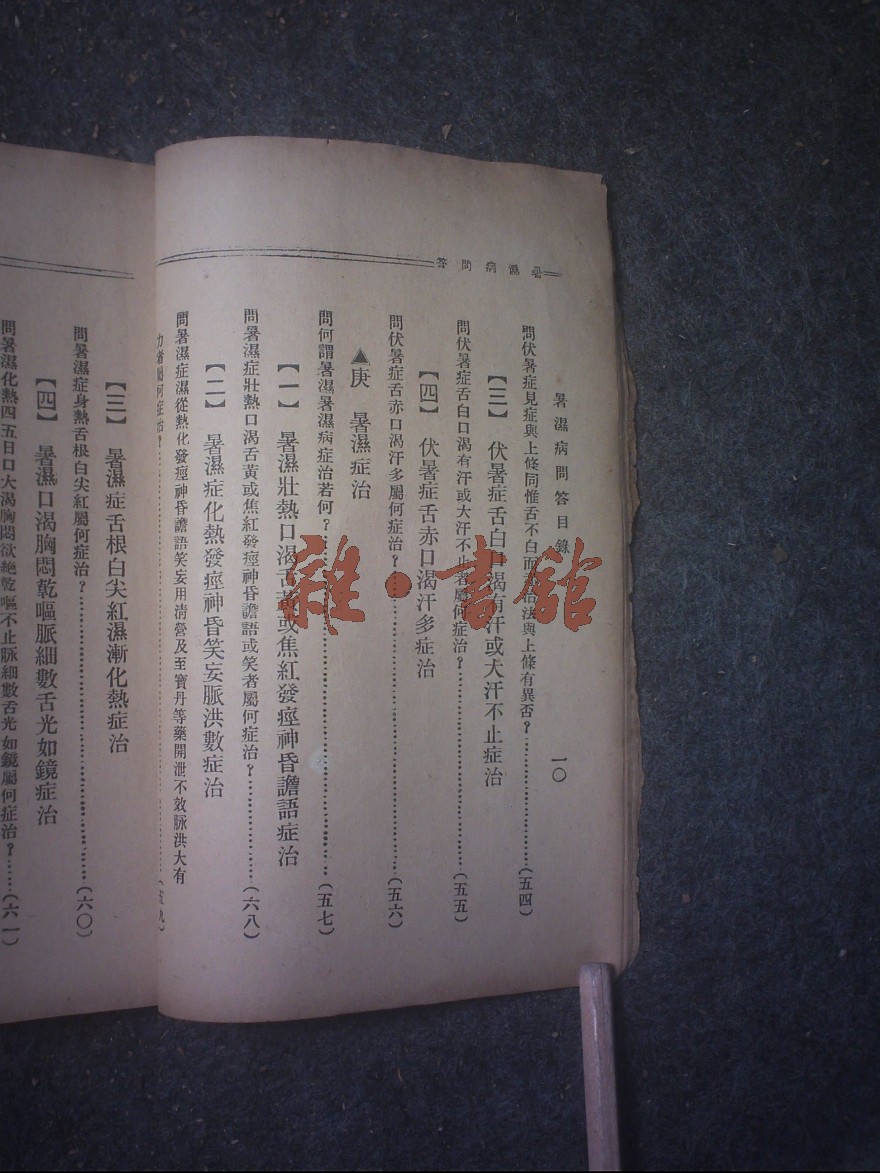 暑濕病問答
暑濕病問答目錄 一〇
問伏暑症見症與上條同惟舌不白而治法與上條有異否？……(五四)
【三】 伏暑症舌白口渴有汗或大汗不止症治
問伏暑症舌白口渴有汗或大汗不止者屬何症治？……(五五)
【四】 伏暑症舌赤口渴汗多症治
問伏暑症舌赤口渴汗多屬何症治？……(五六)
▲庚 暑濕症治
問何謂暑濕暑濕病症治若何？……(五七)
【一】 暑濕壯熱口渴舌黃或焦紅發痙神昏譫語症治
問暑濕症壯熱口渴舌黃或焦紅發痙神昏譫語或笑者屬何症治？……(六八)
【二】 暑濕症化熱發痙神昏笑妄脈洪數症治
問暑濕症濕從熱化發痙神昏譫語笑妄用清營及至寶丹等藥開泄不效脉洪大有
力者屬何症治？……(五九)
【三】 暑濕症舌根白尖紅濕漸化熱症治
問暑濕症身熱舌根白尖紅屬何症治？……(六〇)
【四】 暑濕口渴胸悶乾嘔脈細數舌光如鏡症治
問暑濕化熱四五日口大渴胸悶欲絶乾嘔不止脉細數舌光如鏡屬何症治？……(六一)
雜·書館